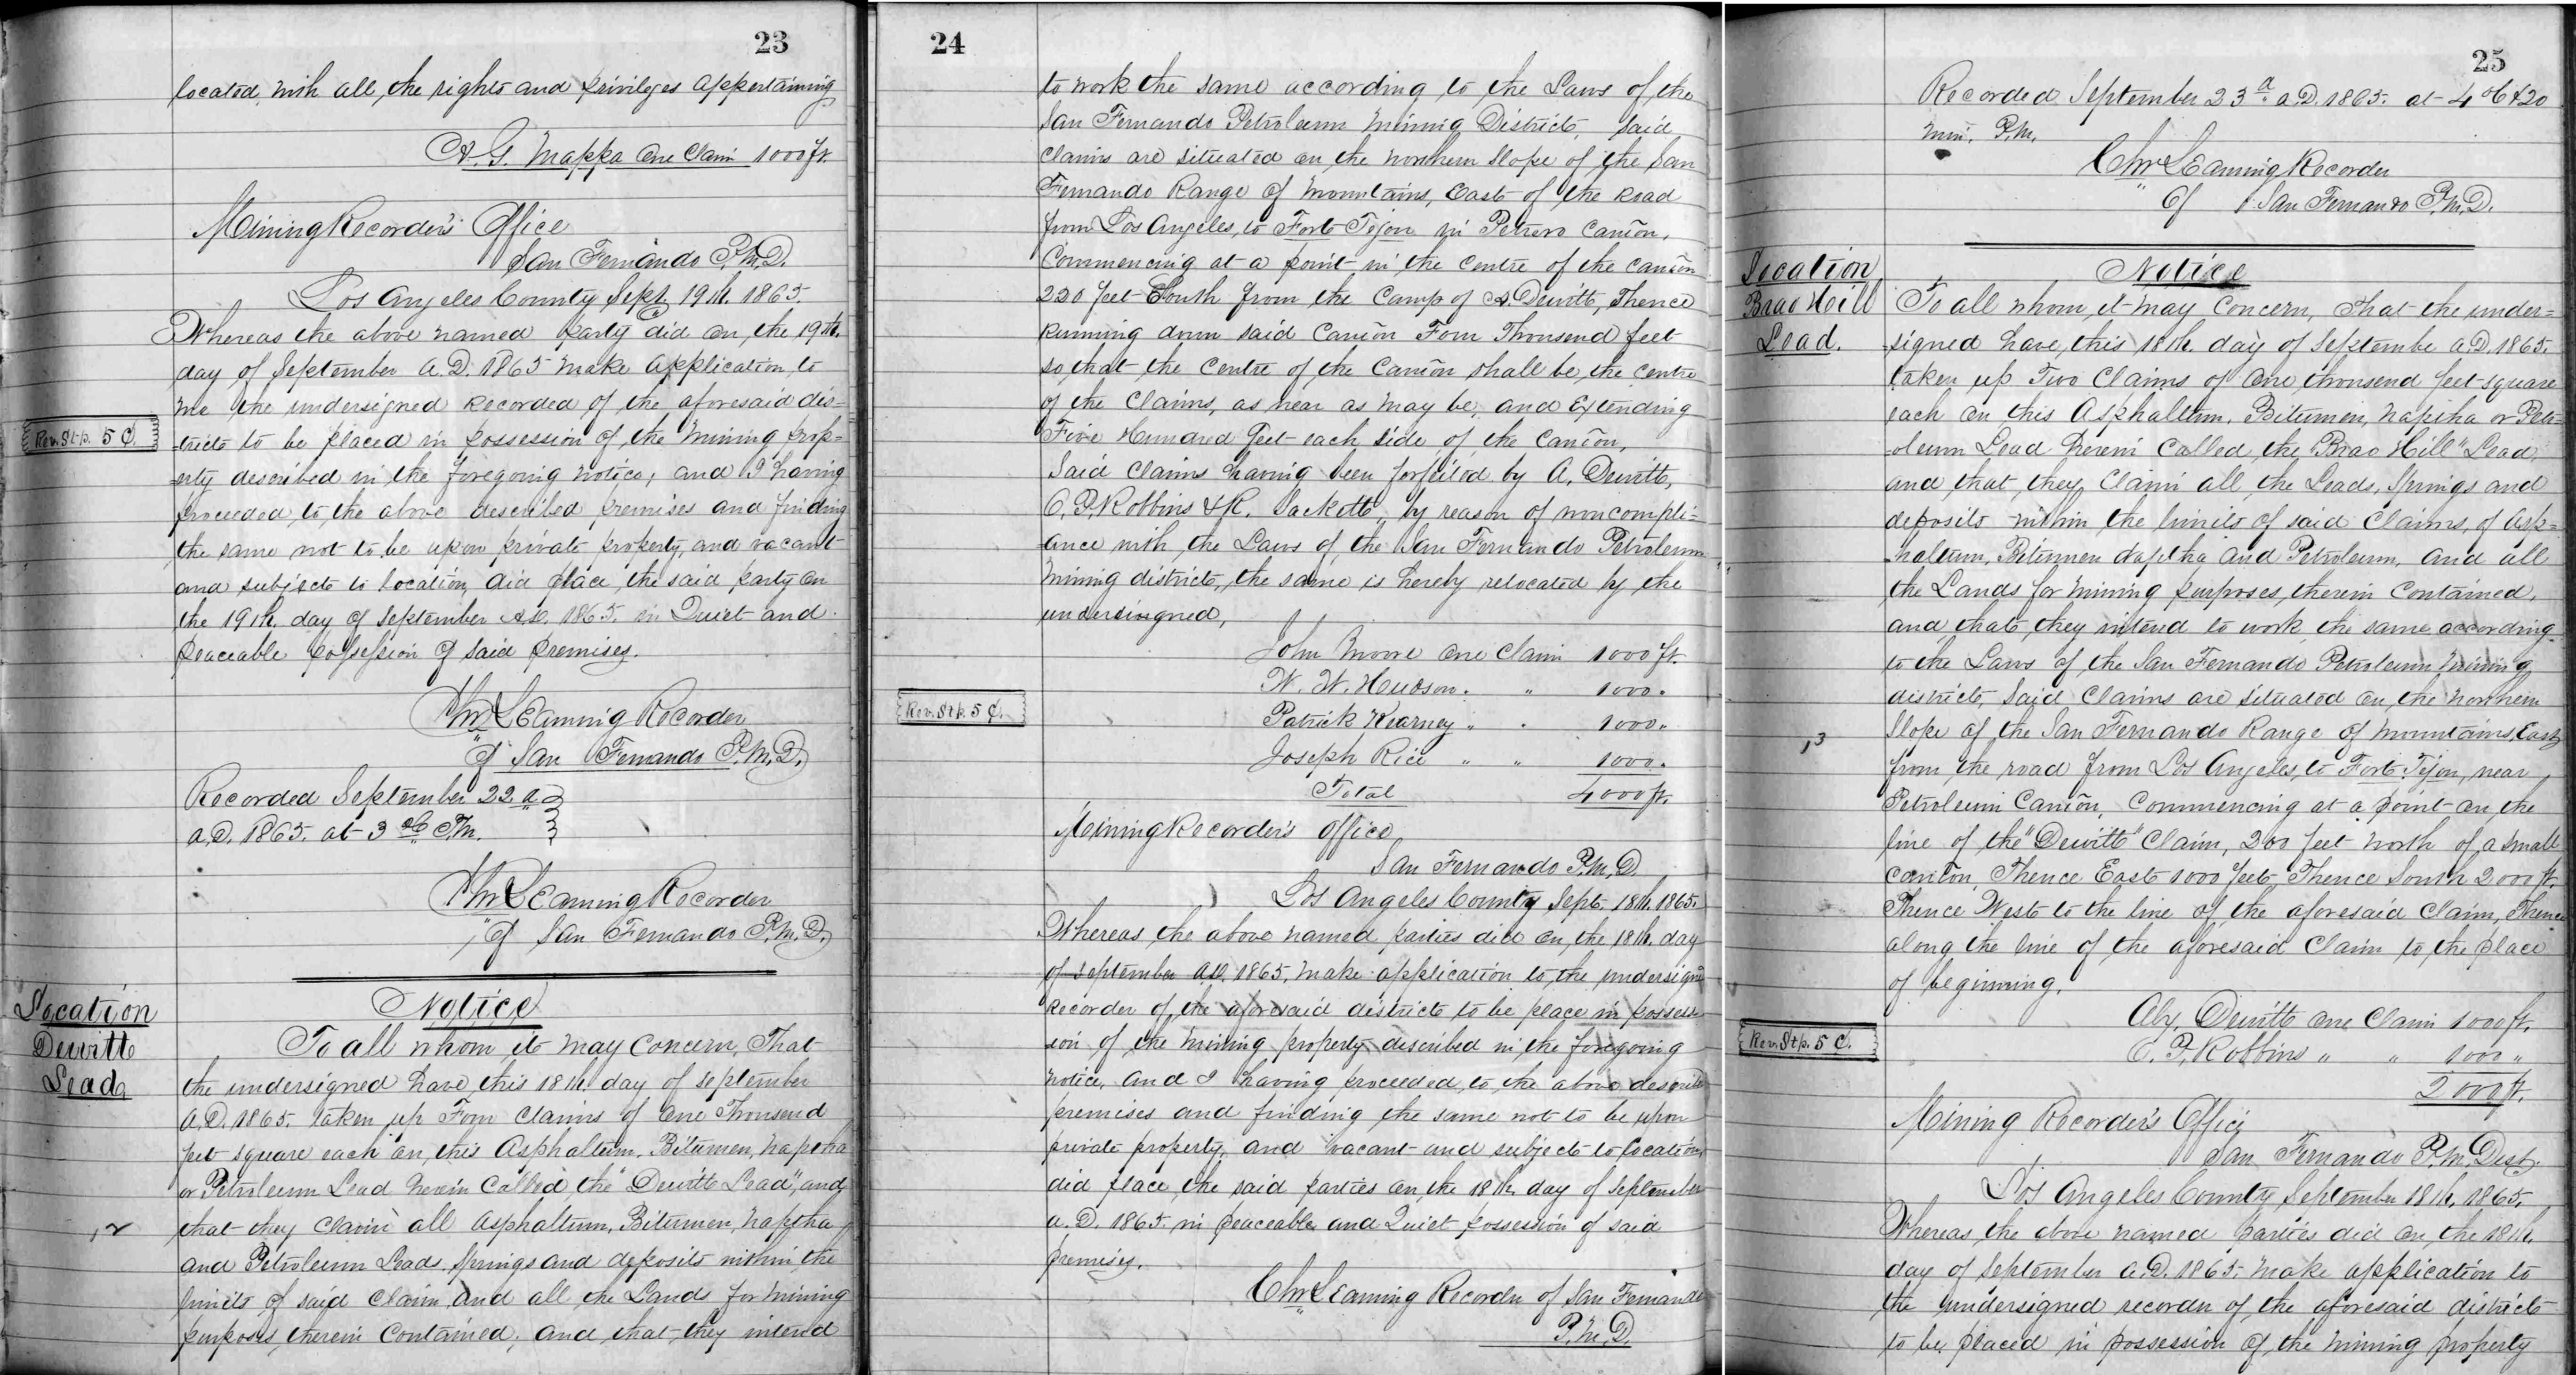 23
located, with all the rights and privileges appertaining
A. G. Mappa One Claim 1000 ft.
Mining Recorder's Office
San Fernando P.M.D.
Los Angeles County Sept. 19th. 1865.
Whereas the above named party did on the 19th.
day of September A.D. 1865 make application to
me the undersigned Recorded of the aforesaid dis=
Rev. Stp. 5 C.
tricts to be placed in possession of the mining prop=
erty described in the foregoing notice; and I having
proceeded to the above described premises and finding
the same not to be upon private property, and vacant
and subject to location, did place the said party on
the 19th. day of September A.D. 1865. in Quiet and
peaceable possession of said premises.
Chr Leaming Recorder
of San Fernando P.M.D.
Recorded September 22
A.D. 1865. at 3 P.M.
Chr Leaming Recorder
of San Fernando P.M.D.
Location
Dewitt
Lead
Notice
To all whom it may Concern, That
the undersigned have this 18th. day of September
A.D. 1865. taken up Four Claims of One Thousend
feet square each on this Asphaltum, Bitumen, Naptha
or Petroleum Lead herein Called the "Dewitt Lead", and
that they Claim all Asphaltum, Bitumen, Naptha
and Petroleum Leads, Springs and deposits within the
limits of said Claim, and all the Lands for mining
purposes, therein Contained, and that they intend
24
to work the same according to the Laws of the
San Fernando Petroleum Mining District, Said
Claims are situated on the northern slope of the San
Fernando Range of Mountains, East of the Road
from Los Angeles, to Fort Tejon in Petrero Cañon,
Commencing at a point in the centre of the Cañon
220 feet South from the Camp of A. Dewitt, Thence
running down said Cañon Four Thousend feet
so that the Centre of the Cañon shall be the centre
of the Claims, as near as may be, and Extending
Five Hundred feet each side of the Cañon,
Said Claims having been forfeited by A. Dewitt,
C. P. Robbins & R. Sackett, by reason of noncompli=
ance with the Laws of the San Fernando Petroleum
Mining district, the same is hereby relocated by the
undersigned,
John Moore One Claim 1000 ft.
W. W. Hudson " 1000 "
Rev. Stp. 5 C.
Patrick Kearney " " 1000 "
Joseph Rice " " 1000 "
Total 4000 ft.
Mining Recorder's Office
San Fernando P.M.D.
Los Angeles County Sept. 18th. 1865.
Whereas the above named parties did on the 18th. day
of September A.D. 1865, make application to the undersigned
Recorder of the aforesaid district to be place in possess
ion of the Mining property described in the foregoing
notice, and I having proceeded to the above described
premises and finding the same not to be upon
private property, and vacant and subject to location
did place the said parties on the 18th. day of September
A.D. 1865. in peaceable and Quiet possession of said
premises.
Chr Leaming Recorder of San Fernando
P.M.D.
25
Recorded September 23 A.D. 1865. at 4 & 20
min. P.M.
Chr Leaming Recorder
Of San Fernando P.M.D.
Location
Brao Hill
Lead.
Notice
To all whom it may Concern, That the under=
signed have this 18th. day of Septembe A.D. 1865.
taken up Two Claims of One thousend feet square
each on this Asphaltum, Bitumen, Naptha or Petr=
oleum Lead herein Called the "Brao Hill" Lead,
and that they Claim all the Leads, Springs and
deposits within the limits of said Claims, of Asp=
haltum, Bitumen Naptha and Petroleum, and all
the Lands for Mining purposes, therein Contained,
and that they intend to work the same according
to the Laws of the San Fernando Petroleum Mining
district, Said Claims are situated on the northern
Slope of the San Fernando Range of Mountains, East
from the road from Los Angeles, to Fort Tejon, near
Petroleum Cañon, Commencing at a point on the
line of the "Dewitt" Claim, 200 feet north of a small
Cañon, Thence East 1000 feet Thence South 2000 ft.
Thence West to the line of the aforesaid Claim, Thence
along the line of the aforesaid Claim to the place
of beginning.
Alx. Dewitt One Claim 1000 ft.
Rev. Stp. 5 C.
C. P. Robbins " " 1000 "
2000 ft.
Mining Recorder's Office
San Fernando P.M. Dist.
Los Angeles County September 18th. 1865.
Whereas the above named parties did on the 18th.
day of September A.D. 1865. make application to
the undersigned recorder of the aforesaid district
to be placed in possession of the mining property